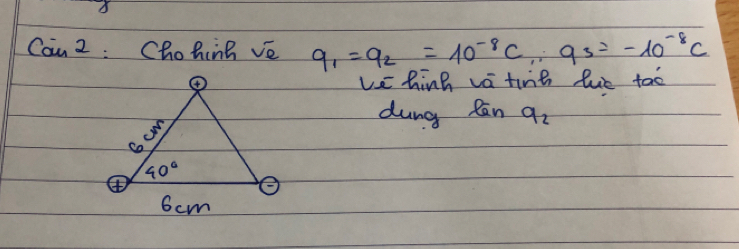 Câu 2 : Cho hình vẽ q₁ = q₂ = 10⁻⁸ C ; q₃ = -10⁻⁸ C
vẽ hình và tính lực tác
dụng lên q₂
+
6 cm
40°
+
-
6 cm